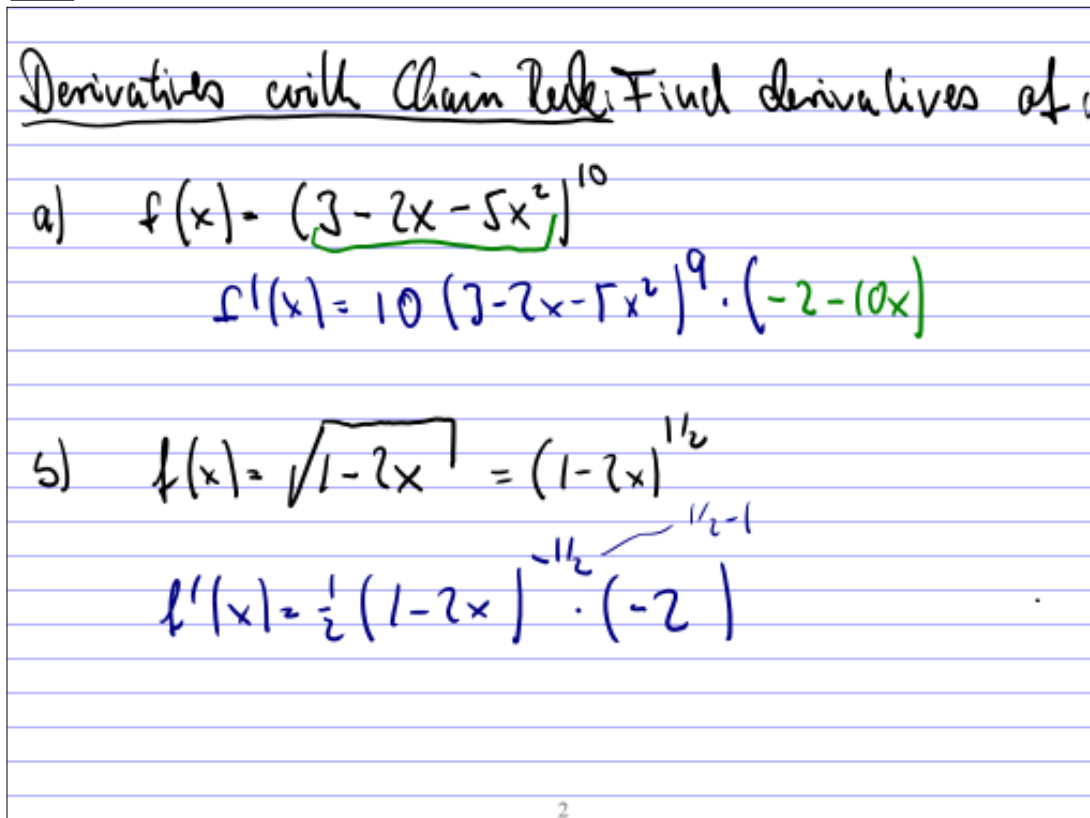 Derivatives with Chain Rule: Find derivatives of
a) f(x) = (3 - 2x - 5x²)¹⁰
f'(x) = 10 (3-2x-5x²)⁹ · (-2-10x)
b) f(x) = √(1-2x) = (1-2x)^1/2
1/2-1
f'(x) = 1/2 (1-2x)^-1/2 · (-2)
2